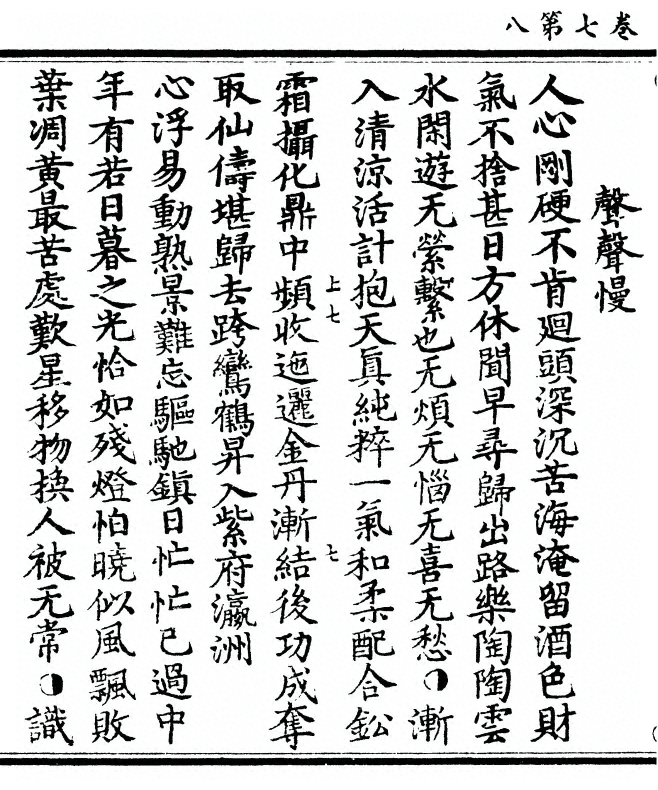 卷七第八
聲聲慢
人心剛硬不肯廻頭深沉苦海淹留酒色財
氣不捨甚日方休聞早尋歸出路樂陶陶雲
水閑遊无縈繫也无煩无惱无喜无愁◐漸
入清涼活計抱天眞純粹一氣和柔配合鈆
上七
七
霜攝化鼎中頻收迤邐金丹漸結後功成奪
取仙儔堪歸去跨鸞鶴昇入紫府瀛洲
心浮易動熟景難忘驅馳鎭日忙忙已過中
年有若日暮之光恰如殘燈怕曉似風飄敗
葉凋黃最苦處歎星移物換人被无常◐識